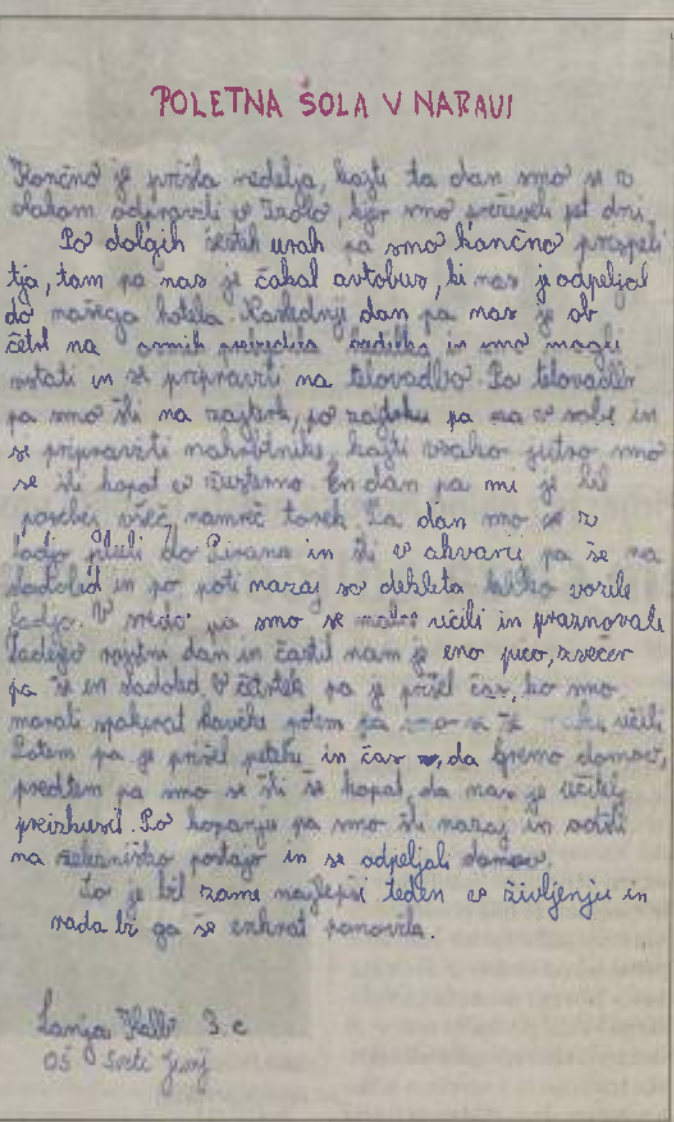 POLETNA ŠOLA V NARAVI
Končno je prišla nedelja, kajti ta dan smo se z
vlakom odpravili v Izolo, kjer smo preživeli pet dni.
Po dolgih šestih urah pa smo končno prispeli
tja, tam pa nas je čakal avtobus, ki nas je odpeljal
do našega hotela. Naslednji dan pa nas je ob
četrt na osmih prebudila budilka in smo mogli
vstati in se pripraviti na telovadbo. Po telovadbi
pa smo šli na zajterk, po zajterku pa v sobe in
se pripraviti nahrbtnike, kajti vsako jutro smo
se šli kopat v Simonov. En dan pa mi je bil
posebej všeč, namreč torek. Ta dan smo se z
ladjo pluli do Pirana in šli v akvarij pa še na
sladoled in po poti nazaj so dekleta lahko vozile
ladjo. V sredo pa smo se malo učili in praznovali
rojstni dan in častil nam je eno pico, zvečer
pa še en sladoled. V četrtek pa je prišel čas, ko smo
morali spakirat kovčke potem pa smo se še malo učili
Potem pa je prišel petek in čas, da gremo domov,
predtem pa smo se šli še kopat, da nas je učitelj
preizkusil. Po kopanju pa smo šli nazaj in odšli
na železniško postajo in se odpeljali domov.
To je bil zame najlepši teden v življenju in
rada bi ga še enkrat ponovila.
Lanja Kolb 3. c
OŠ Sveti Jurij